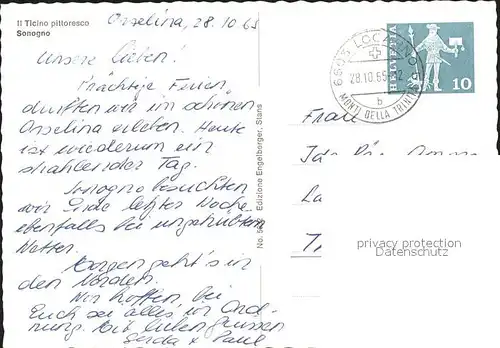 Il Ticino pittoresco
Sonogno
Orselina, 28.10.65
Unsere Lieben!
Prächtige Ferien
durften wir im schönen
Orselina erleben. Heute
ist wiederum ein
strahlender Tag.
Sonogno besuchten
wir Ende letzter Woche
ebenfalls bei ungetrübtem
Wetter.
Morgen geht's in
den Norden.
Wir hoffen, bei
Euch sei alles in Ord-
nung. Mit lieben Grüssen
Gerda + Paul
No. Edizione Engelberger, Stans
6605 LOCARNO
28.10.65
b
MONTI DELLA TRINITA
HELVETIA
10
Frau
privacy protection
Datenschutz